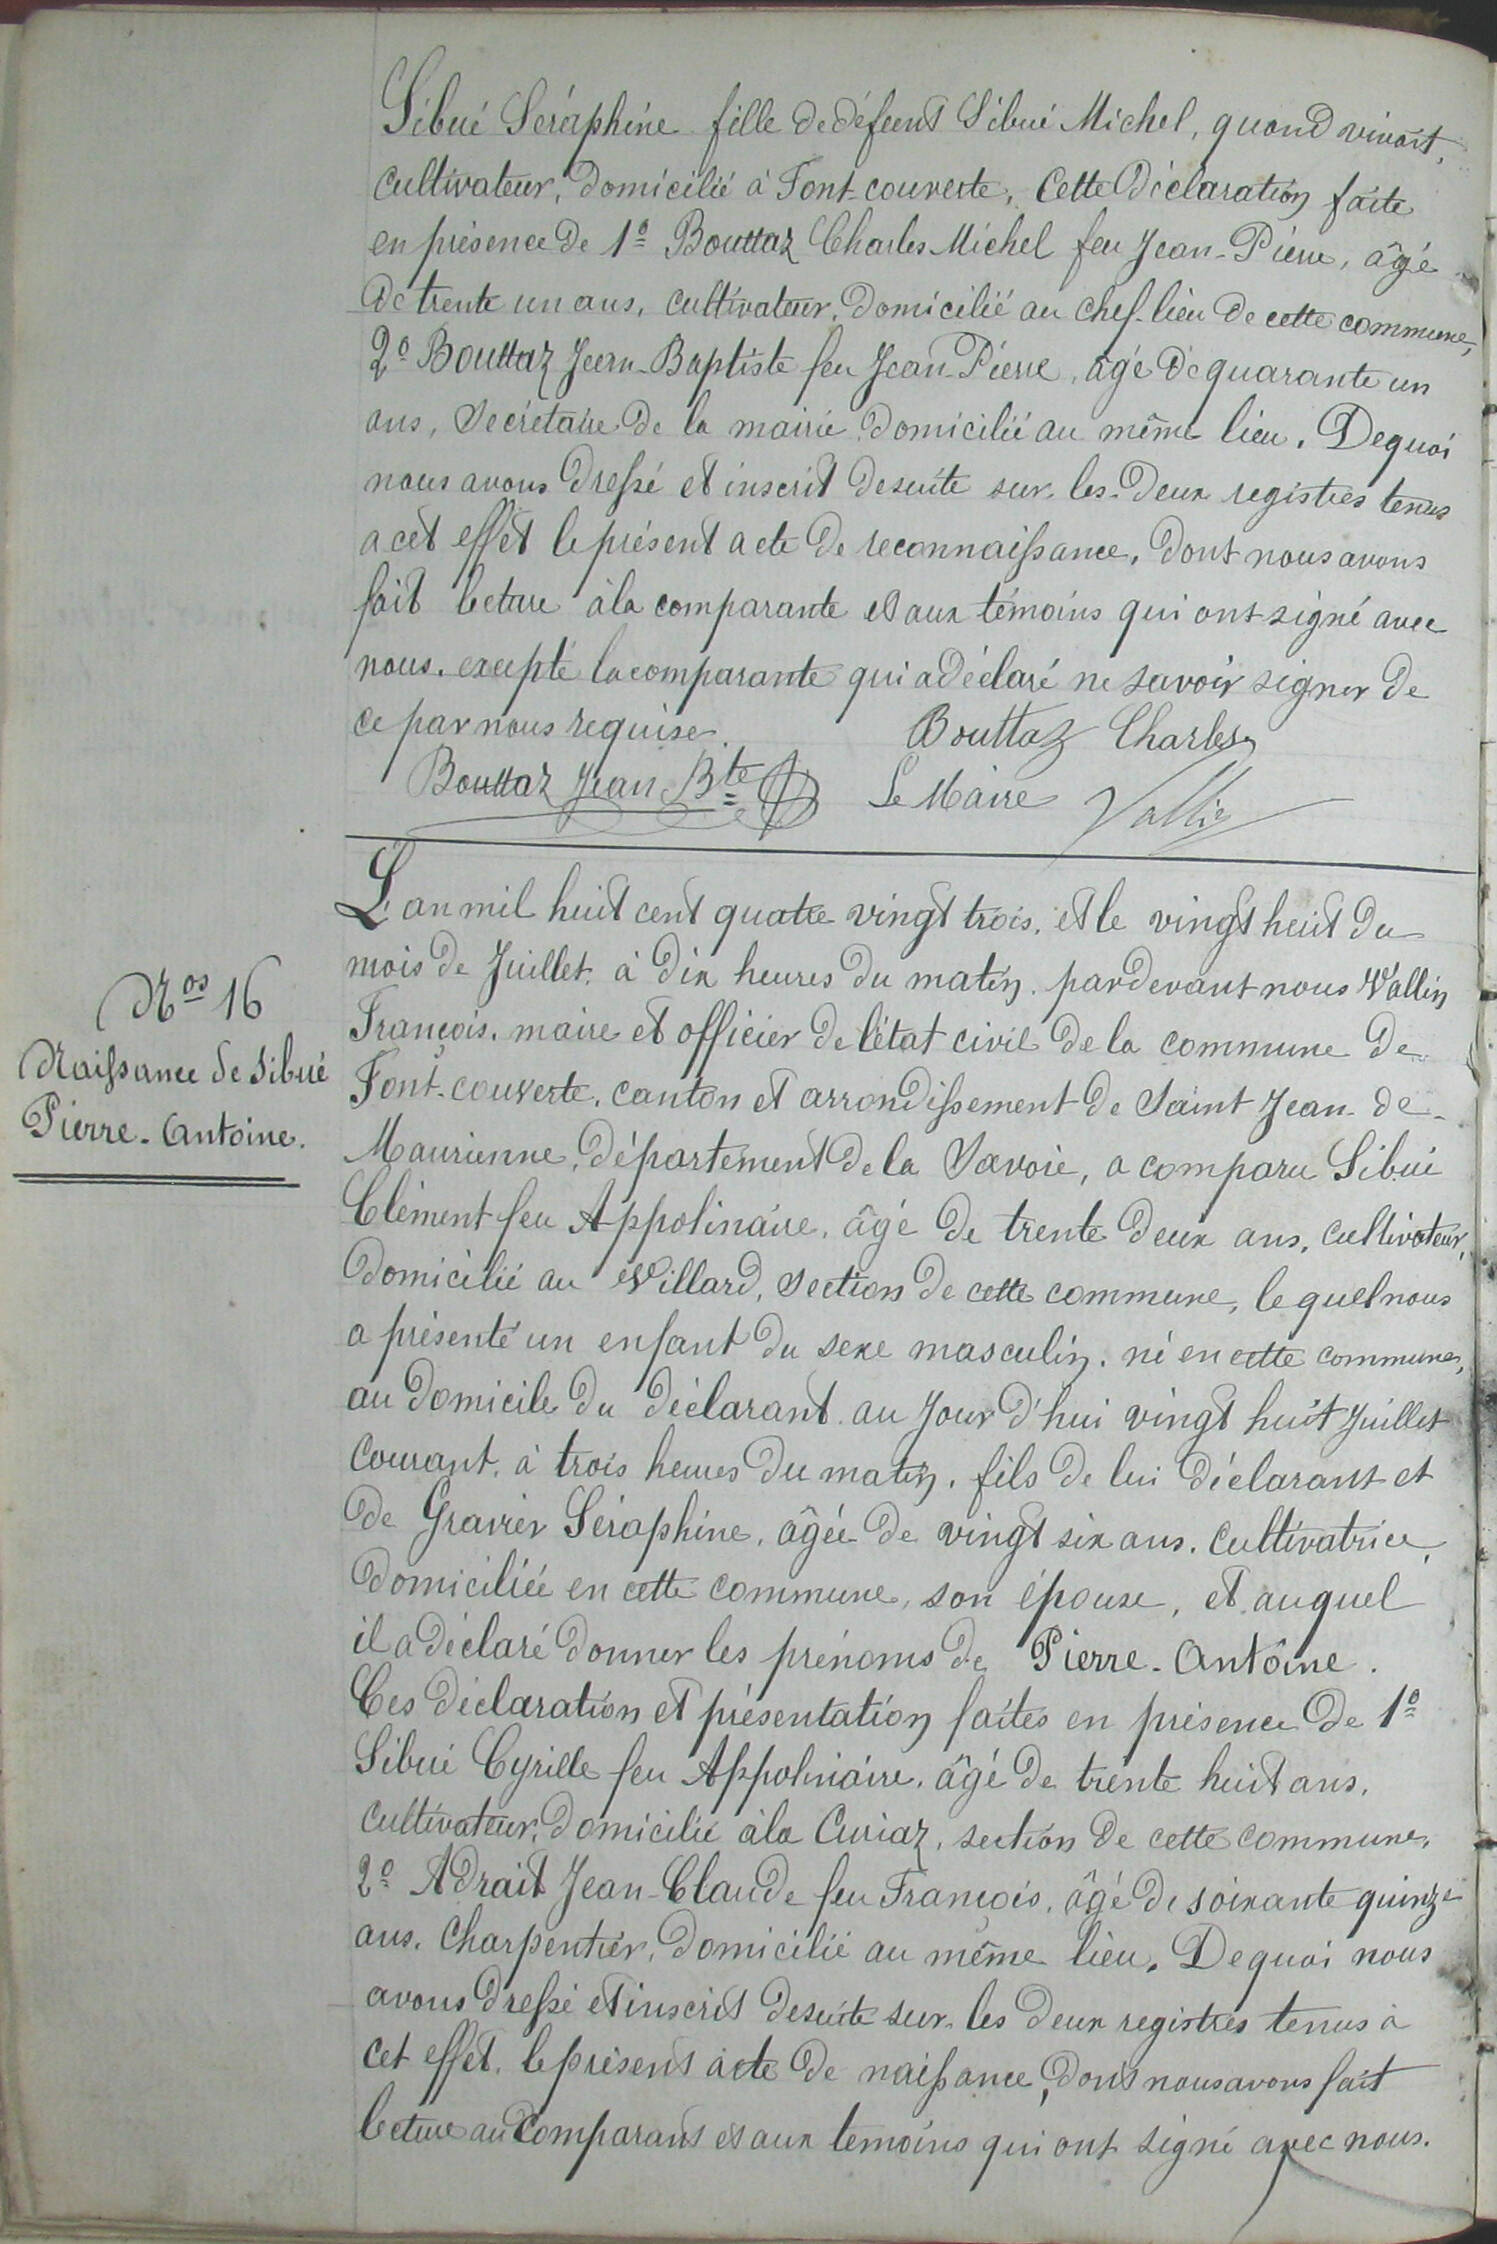 Sibué Séraphine fille de défunt Sibué Michel, quand vivait,
cultivateur, domicilié à Font-couverte, Cette déclaration faite
en présence de 1º Bouttaz Charles Michel feu Jean-Pierre, âgé
de trente un ans, cultivateur, domicilié au chef-lieu de cette commune,
2º Bouttaz Jean-Baptiste feu Jean-Pierre, âgé de quarante un
ans, Secrétaire de la mairie domicilié au même lieu. Dequoi
nous avons dressé et inscrit desuite sur les deux registres tenus
a cet effet le présent acte de reconnaissance, dont nous avons
fait lecture à la comparante et aux témoins qui ont signé avec
nous. excepté la comparante qui a déclaré ne savoir signer de
ce par nous requise.
Bouttaz Charles
Bouttaz Jean Bte
Le Maire Vallin
Nos 16
Naissance de Sibué
Pierre-Antoine.
L'an mil huit cent quatre vingt trois, et le vingt huit du
mois de Juillet, à dix heures du matin. pardevant nous Vallin
François. maire et officier de l'état civil de la commune de
Font-couverte, canton et arrondissement de Saint Jean-de-
Maurienne, département de la Savoie, a comparu Sibué
Clément feu Appolinaire, âgé de trente deux ans, cultivateur,
domicilié au Villard, Section de cette commune, lequel nous
a présenté un enfant du sexe masculin. né en cette commune,
au domicile du déclarant au Jour d'hui vingt huit Juillet
courant, à trois heures du matin. fils de lui déclarant et
de Gravier Séraphine, âgée de vingt six ans. cultivatrice,
domiciliée en cette commune, son épouse, et auquel
il a déclaré donner les prénoms de Pierre-Antoine.
Ces déclaration et présentation faites en présence de 1º
Sibué Cyrille feu Appolinaire, âgé de trente huit ans,
cultivateur, domicilié à la Curiaz, section de cette commune,
2º Adrait Jean-Claude feu François, âgé de soixante quinze
ans. Charpentier, domicilié au même lieu. Dequoi nous
avons dressé et inscrit desuite sur les deux registres tenus à
cet effet. le présent acte de naissance, dont nous avons fait
lecture au comparant et aux temoins qui ont signé avec nous.